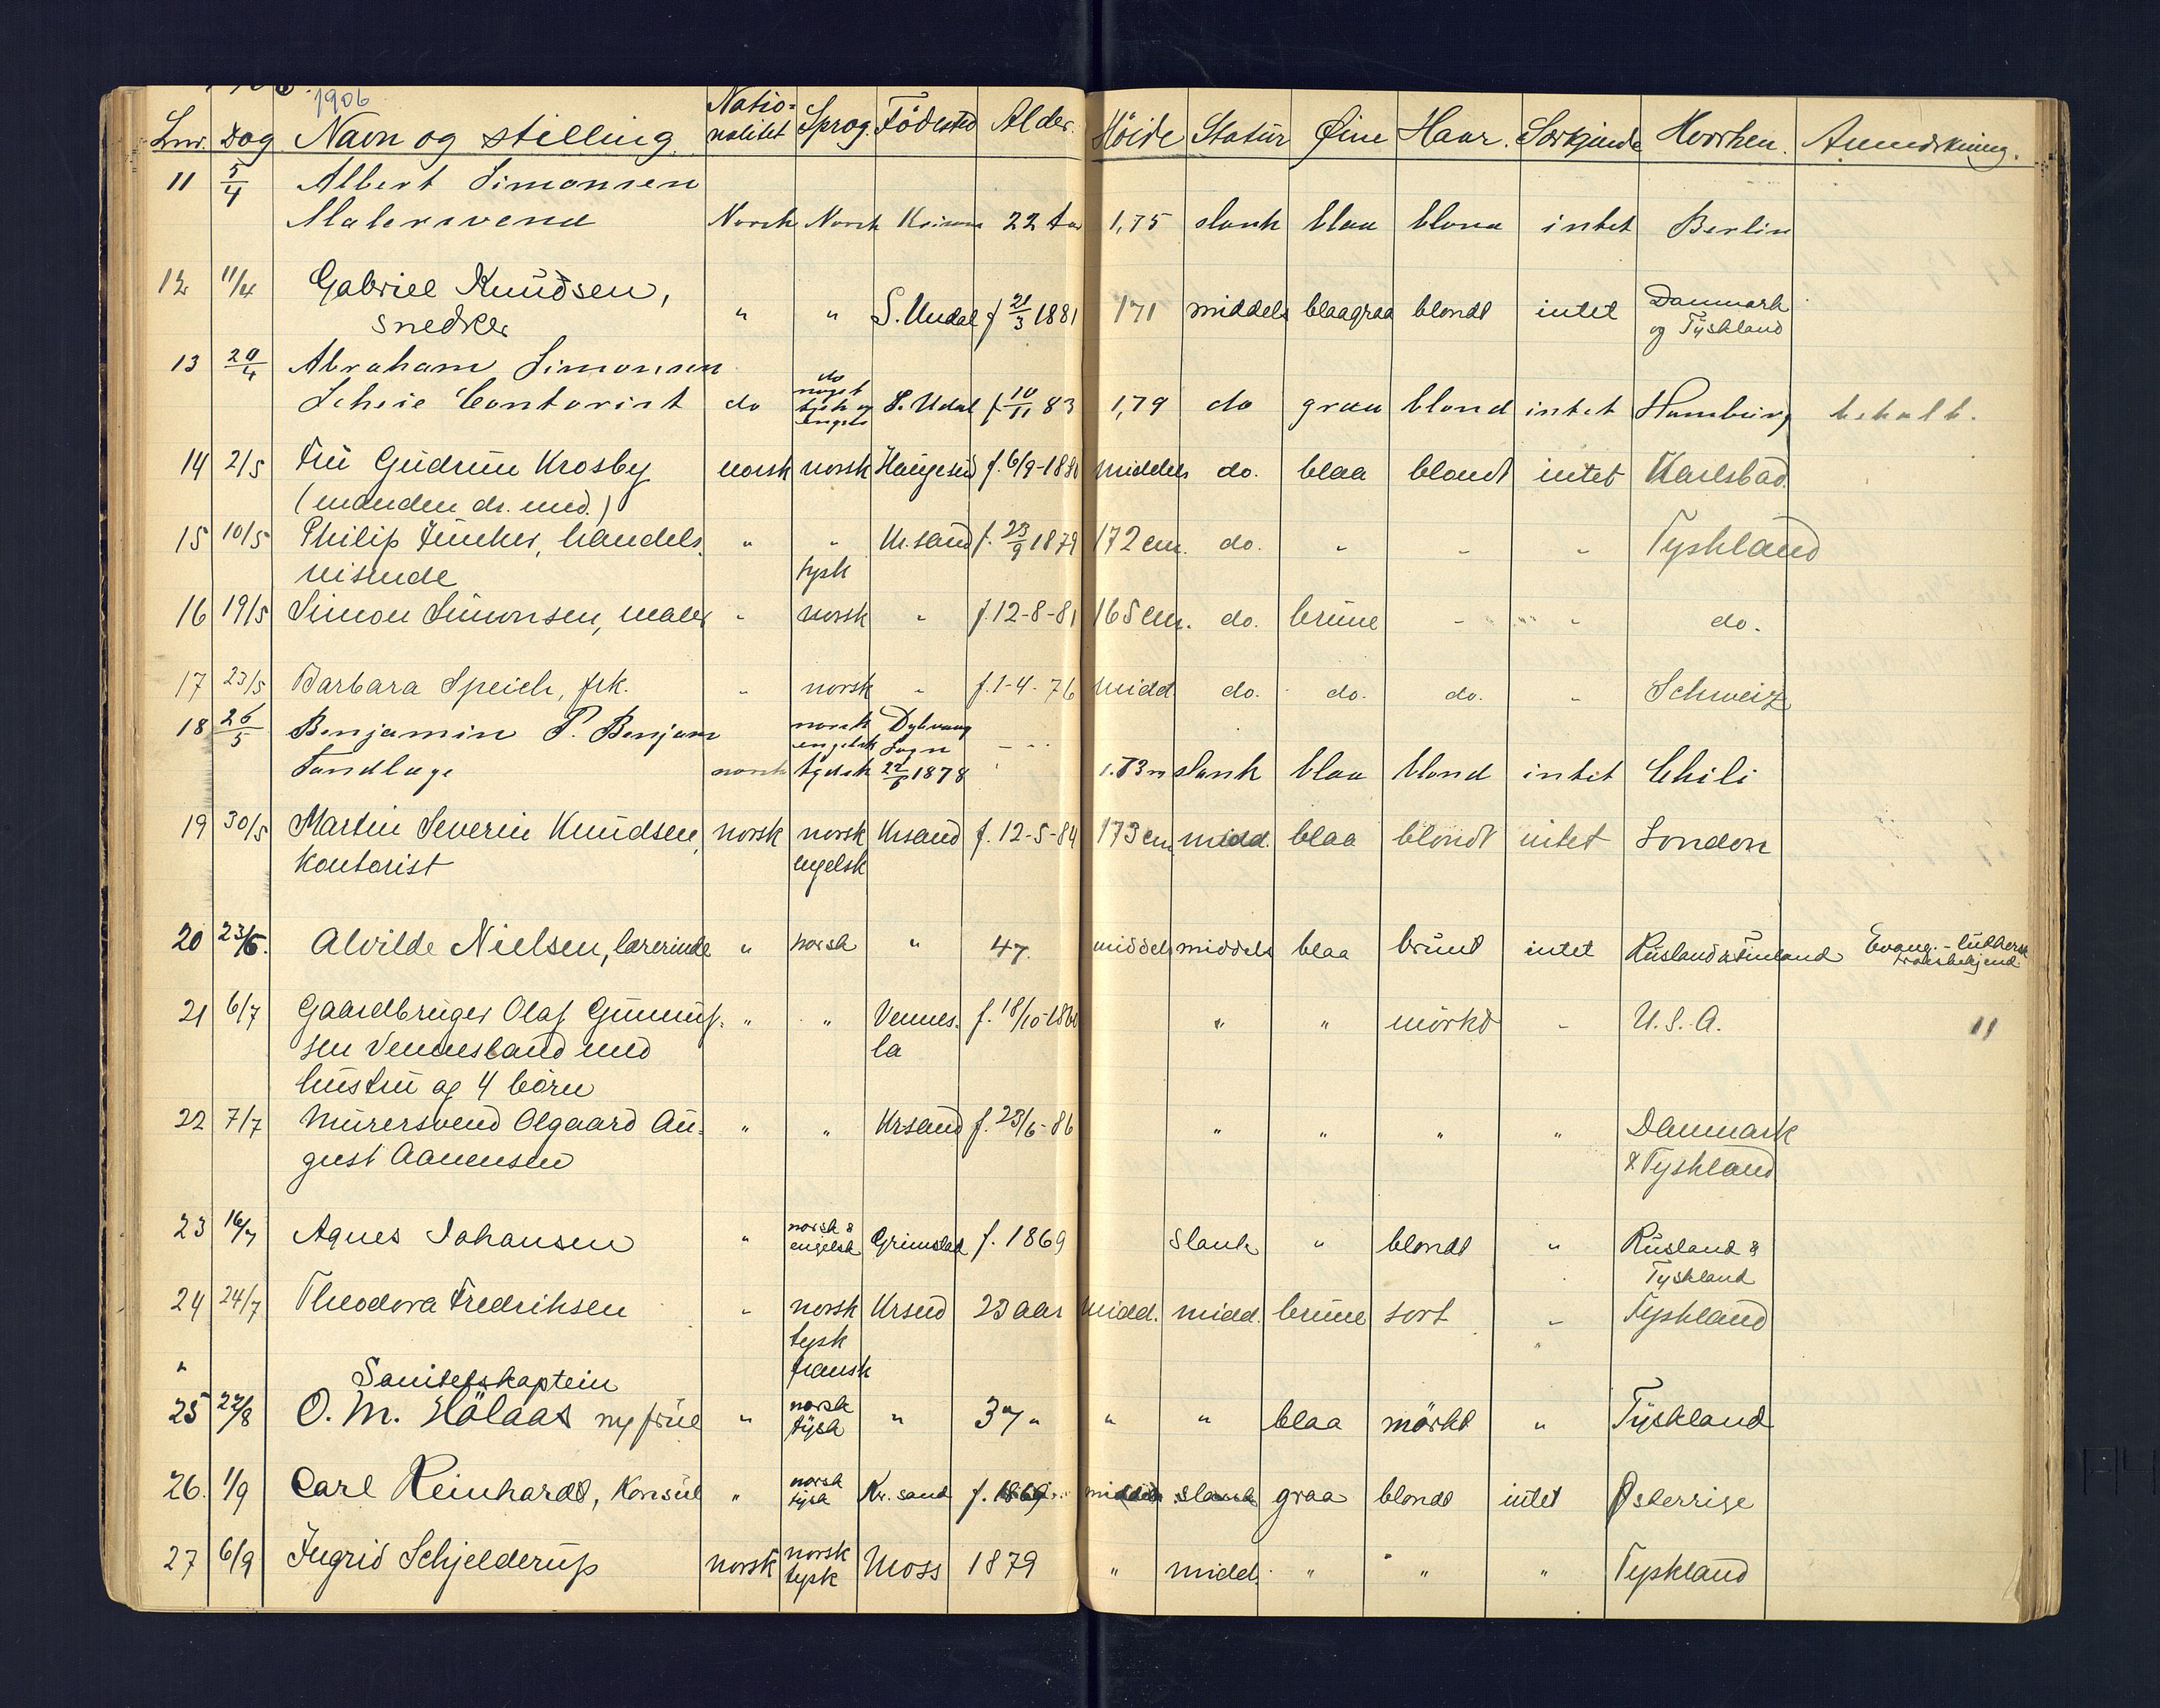 1906
Lnr. Dag Navn og stilling. Natio- Sprog. Födested Alder. Höide Statur Öine Haar. Særkjende Hvorhen. Anmerkning.
nalitet
11 5/4 Albert Simonsen
Malersvend Norsk Norsk 22 1,75 slank blaa blond intet Berlin
12 11/4 Gabriel Knudsen, Danmark
snedker " " S. Undal f 21/3 1881 171 middels blaagraa blondt intet og Tyskland
13 20/4 Abraham Simonsen do
noget
Scheie Contorist do tysk og S. Udal f 10/11 83 1,79 do graa blond intet Hamburg
engelsk
14 2/5 Fru Gudrun Krosby norsk norsk Haugesund f. 6/9-1880 middels do. blaa blondt intet Karlsbad.
(manden dr. med.)
15 10/5 Philip Juncker, handels- " " Kr.sand f. 23/9 1879 172 cm. do. " " " Tyskland
reisende tysk
16 19/5 Simon Simonsen, maler " norsk " f. 12-8-81 165 cm. do. brune " " do.
17 23/5 Barbara Speich, frk. " norsk " f. 1-4-76 midd do. do. do. " Schweiz
18 26/5 Benjamin P. Benjam norsk Dybvaag
engelsk Sogn
Tandlæge norsk tydsk 1878 1.73 m slank blaa blond intet Chili
19 30/5 Martin Severin Knudsen, norsk norsk Krsand f. 12-5-84 173 cm midd. blaa blondt intet London
Kontorist engelsk
20 23/6. Alvilde Nielsen, lærerinde " norsk " 47 middels middels blaa brunt intet Rusland & Finland Evang.-luthersk
trosbekjend
21 6/7 Gaardbruger Olaf Gunnuf- " " Vennes- f. 18/10-1860 " " mörkt " U.S.A. 11
sen Vennesland med la
hustru og 4 börn
22 7/7 Murersvend Olgaard Au- " " Krsand f. 23/6-86 " " " " Danmark
gust Aanensen & Tyskland
23 16/7 Agnes Johansen " norsk & engelsk Grimstad f. 1869 slank " blondt " Rusland &
Tyskland
24 24/7 Theodora Fredriksen " norsk Krsund 23 aar midd. midd. brune sort " Tyskland
tysk
" fransk
Sanitetskaptein
25 22/8 O. M. Hölaas og frue " norsk tysk " 37 " " " blaa mörkt " Tyskland
26. 1/9 Carl Reinhardt, Konsul " norsk tysk Kr. sand f. 1869 middels slank graa blondt intet Østerrige
27 6/9 Ingrid Schjelderup norsk norsk Moss 1879 " midd. " " " Tyskland
tysk